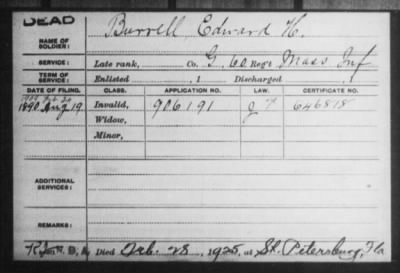 DEAD
NAME OF SOLDIER: Burrell Edward H.
SERVICE: Late rank, Co. G, 60 Reg't Mass Inf
TERM OF SERVICE: Enlisted , 1 Discharged , 1
DATE OF FILING. CLASS. APPLICATION NO. LAW. CERTIFICATE NO.
1890 Aug 19 Invalid, 906191 646818
Widow,
Minor,
ADDITIONAL SERVICES:
Died Feb. 28, 1925, at St. Petersburg, Fla